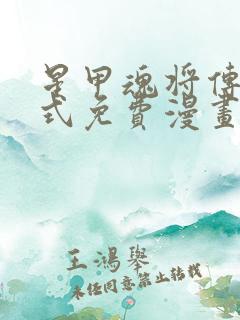 星甲魂将傳
式免費漫畫
王鴻舉
未經同意禁止轉載